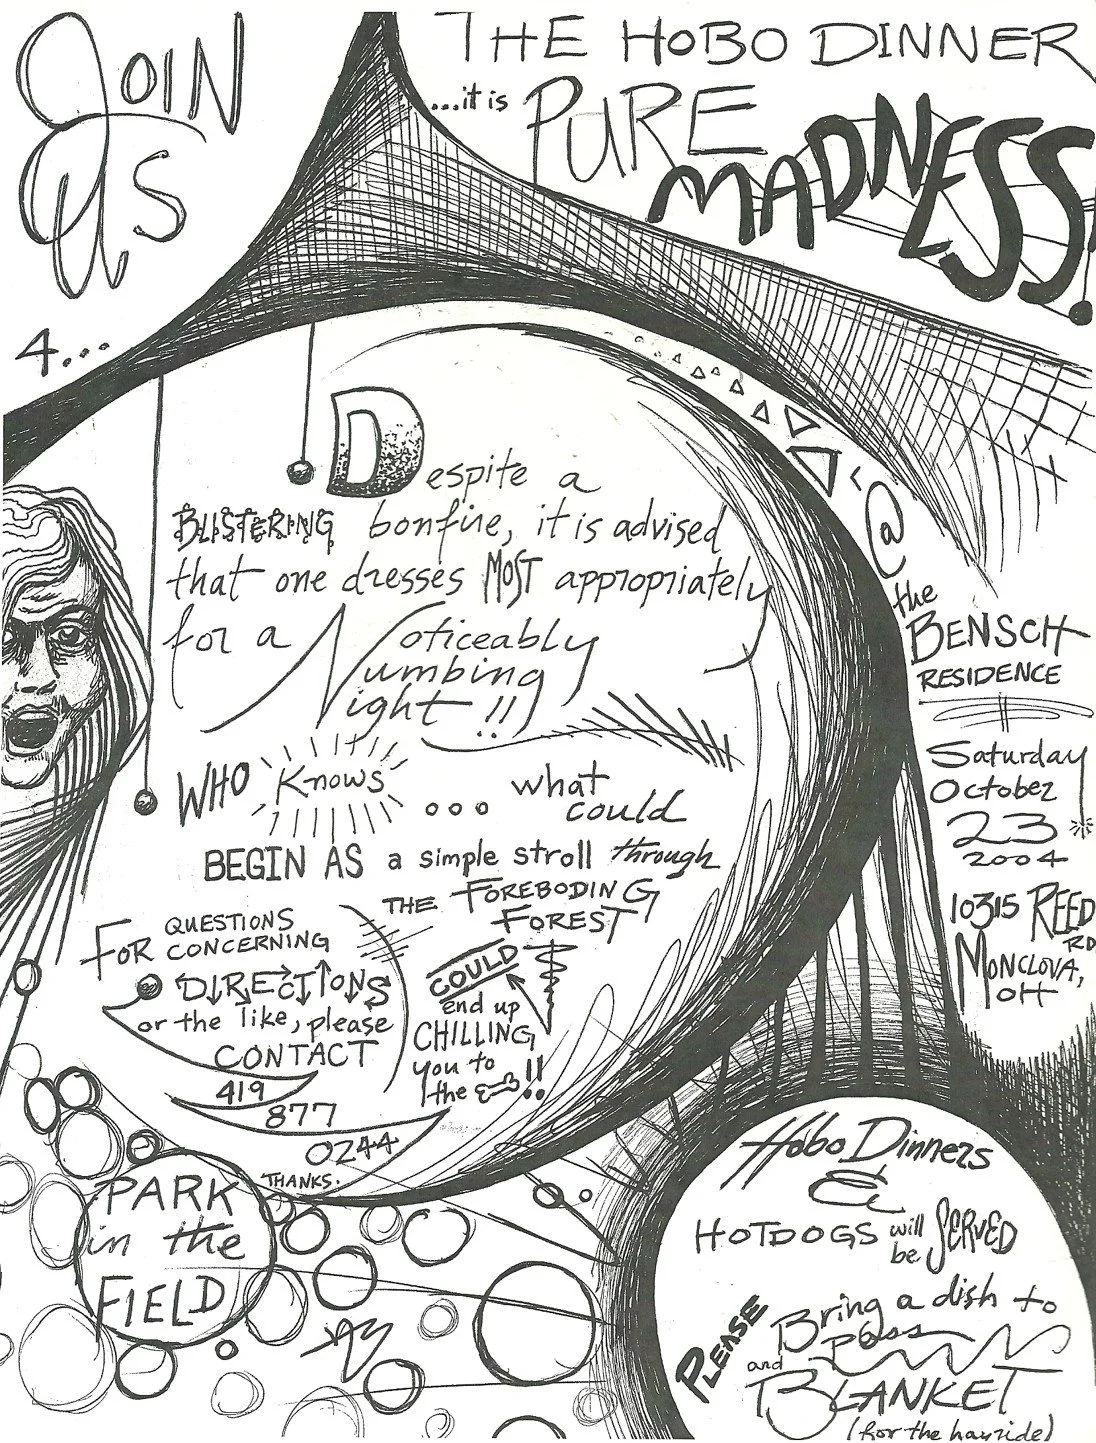 JOIN
US
4...
THE HOBO DINNER
...it is PURE
MADNESS!
Despite a
BLISTERING bonfire, it is advised
that one dresses MOST appropriately
for a Noticeably
Numbing
Night!!
WHO Knows ... what
could
BEGIN AS a simple stroll through
THE FOREBODING
FOREST
COULD
end up
CHILLING
you to
the !!
FOR QUESTIONS
CONCERNING
DIRECTIONS
or the like, please
CONTACT
419
877
0244
THANKS.
@
the
BENSCH
RESIDENCE
Saturday
October
23
2004
10315 REED
RD
MONCLOVA,
OH
PARK
in the
FIELD
Hobo Dinners
&
HOTDOGS will be SERVED
PLEASE Bring a dish to
pass
and BLANKET
(for the hayride)